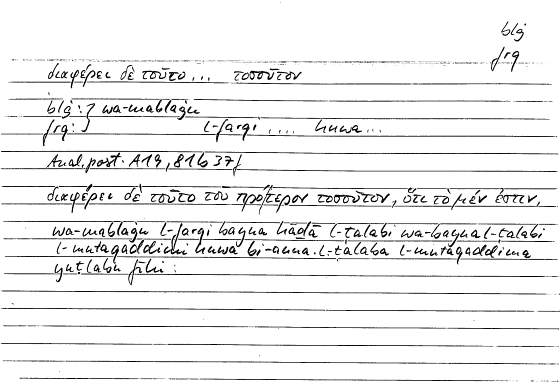 blġ
frq
διαφέρει δὲ τοῦτο ... τοσοῦτον
blġ: } wa-mablaġu
frq: } l-farqi .... huwa...
Anal. post. A19, 81b 37f
διαφέρει δὲ τοῦτο τοῦ πρότερον τοσοῦτον, ὅτι τὸ μέν ἐστιν,
wa-mablaġu l-farqi bayna hāḏā l-ṭalabi wa-bayna l-ṭalabi
l-mutaqaddimi huwa bi-anna l-ṭalaba l-mutaqaddima
yuṭlabu fīhi :